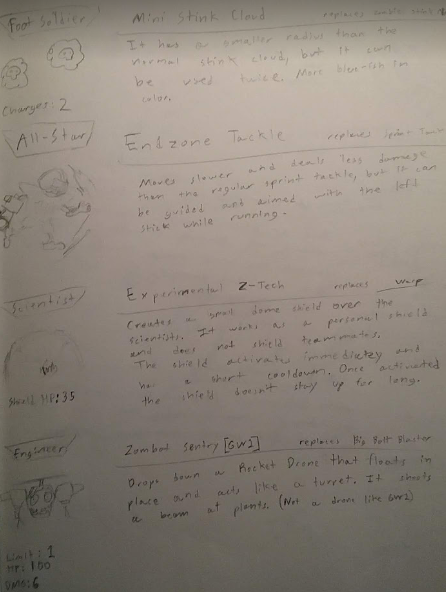 Foot Soldier
Mini Stink Cloud
replaces zombie stink
It has a smaller radius than the
normal stink cloud, but it can
be used twice. More blue-ish in
color.
Charges: 2
All-Star
Endzone Tackle
replaces Sprint Tackle
Moves slower and deals less damage
than the regular sprint tackle, but it can
be guided and aimed with the left
stick while running.
Scientist
Experimental Z-Tech
replaces Warp
Creates a small dome shield over the
scientists. It works as a personal shield
and does not shield teammates.
The shield activates immediatly and
has a short cooldown. Once activated
the shield doesn't stay up for long.
Shield HP: 35
Engineer
Zombot Sentry [GW2]
replaces Big Bolt Blaster
Drops down a Rocket Drone that floats in
place and acts like a turret. It shoots
a beam at plants. (Not a drone like GW2)
Limit: 1
HP: 100
DMG: 6